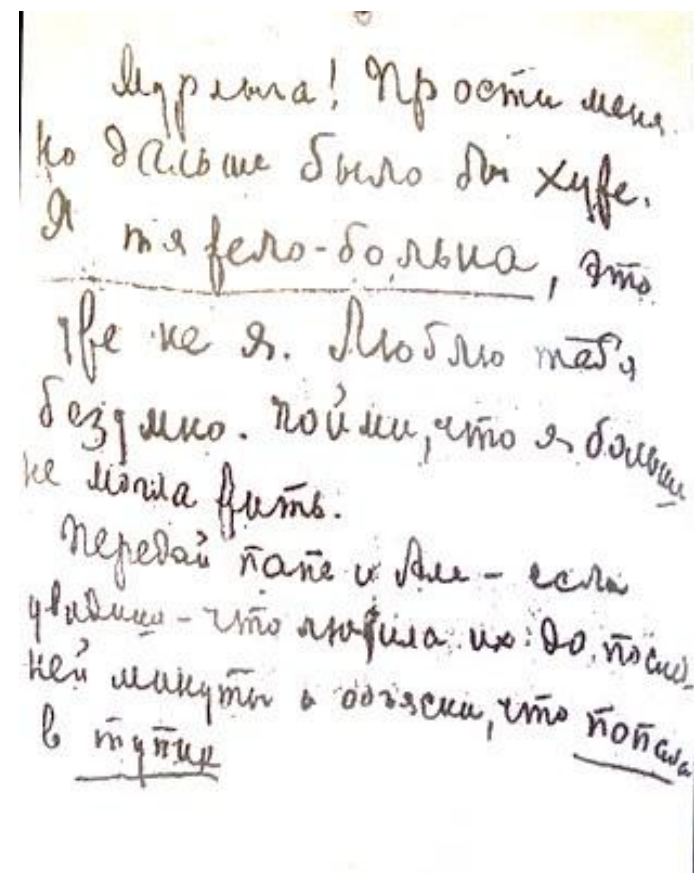 Мурлыга! Прости меня
но дальше было бы хуже.
Я тяжело-больна, это
уже не я. Люблю тебя
безумно. Пойми, что я больше
не могла жить.
Передай папе и Але – если
увидишь – что любила их до послед-
ней минуты и объясни, что попала
в тупик